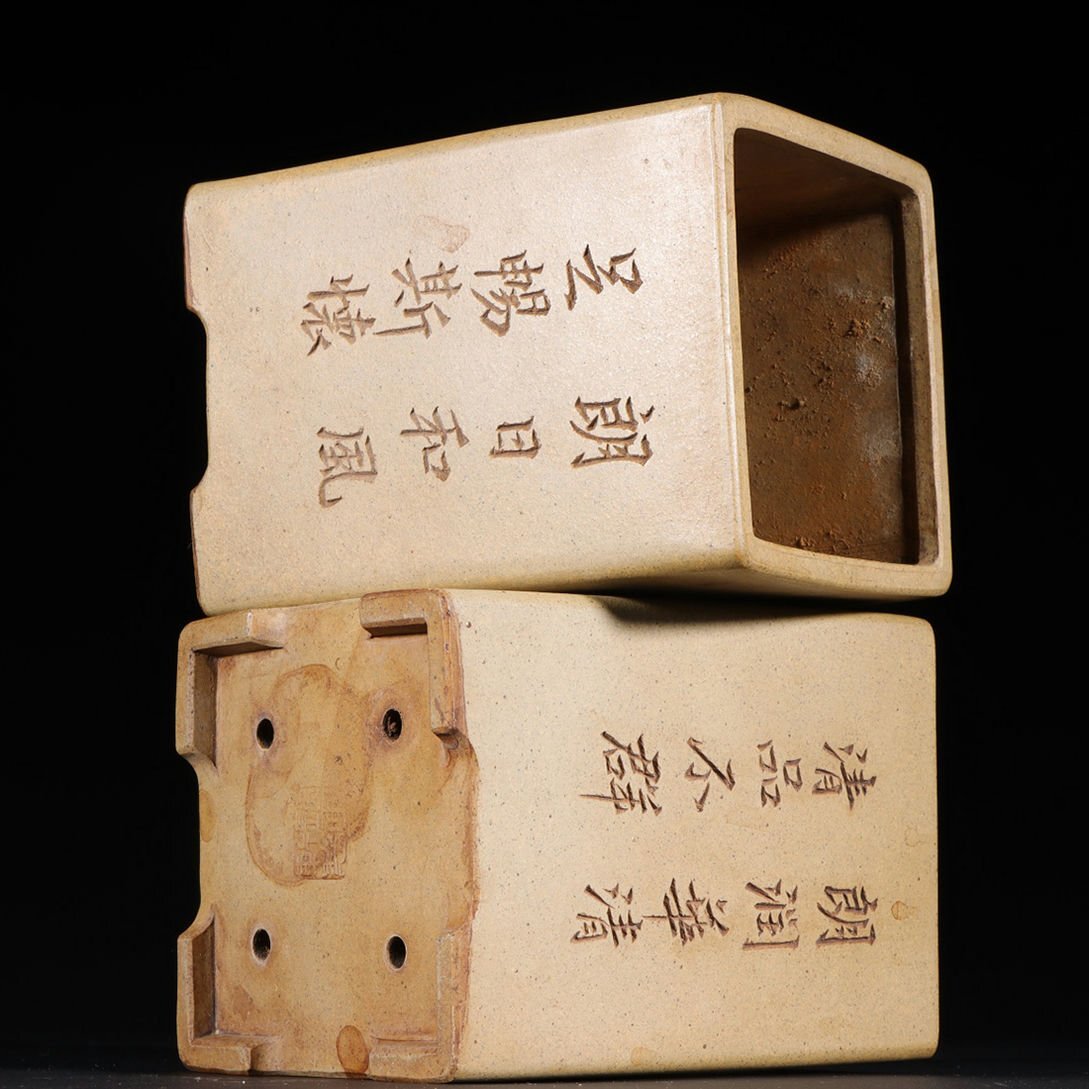 朗日和風
足暢斯懷
朗潤華清
清品不群